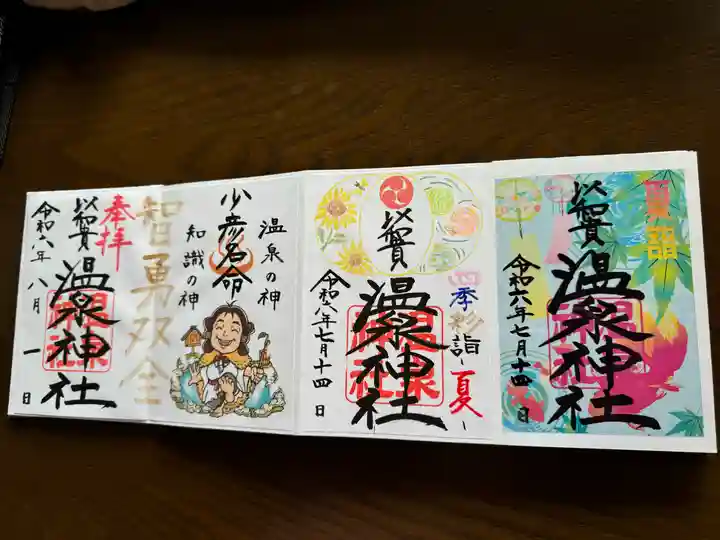 夏詣
温泉神社
令和六年七月十四日
四季彩詣
-夏-
温泉神社
令和八年七月十四日
温泉の神
少彦名命
知識の神
智勇双全
奉拝
温泉神社
令和八年八月一日